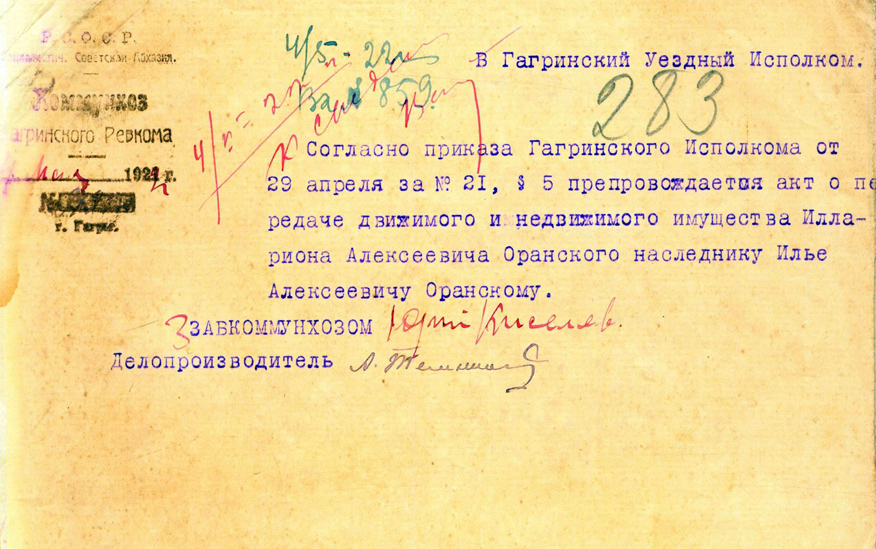 Р.С.Ф.С.Р.
Социалистич. Советская Абхазия.
Коммунхоз
Гагринского Ревкома
4 Мая 1922 г.
№
г. Гагры.
4/5 - 22 г.
За № 859.
4/V - 22 г.
К
В Гагринский Уездный Исполком.
283
Согласно приказа Гагринского Исполкома от
29 апреля за № 21, § 5 препровождается акт о пе
редаче движимого и недвижимого имущества Илла-
риона Алексеевича Оранского наследнику Илье
Алексеевичу Оранскому.
ЗЗАВКОММУНХОЗОМ Юрий Киселев.
Делопроизводитель А.